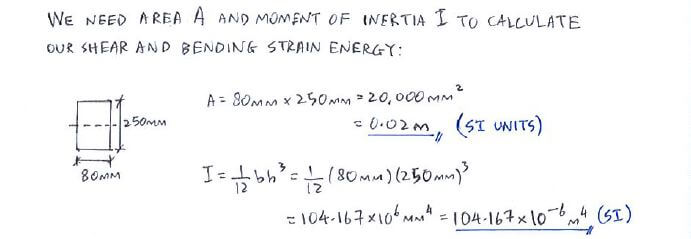 WE NEED AREA A AND MOMENT OF INERTIA I TO CALCULATE
OUR SHEAR AND BENDING STRAIN ENERGY:
A = 80MM x 250MM = 20,000 MM²
= 0.02 M, (SI UNITS)
250MM
80MM
I = 1/12 bh³ = 1/12 (80MM)(250MM)³
= 104.167 x 10⁶ MM⁴ = 104.167 x 10⁻⁶ M⁴ (SI)